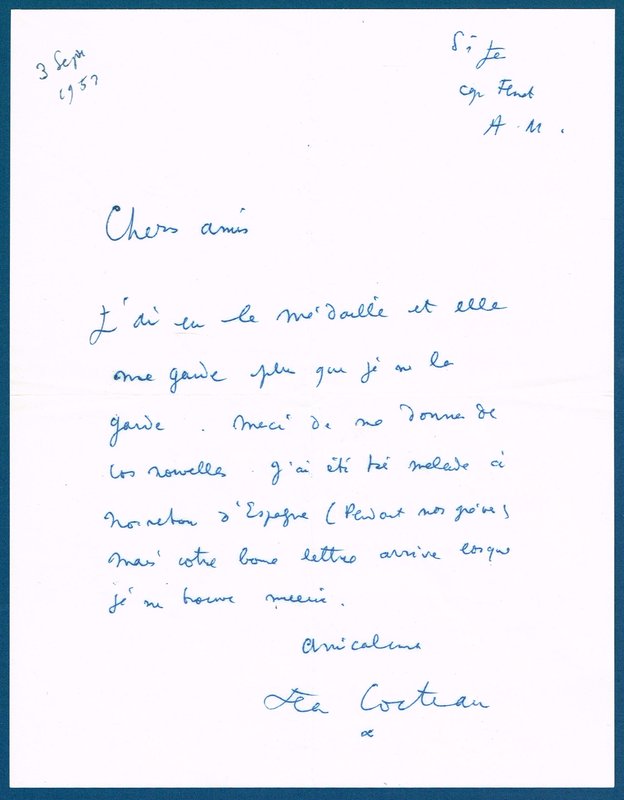 3 Sept
1953
St Jean
Cap Ferrat
A. M.
Chers amis
J'ai eu la médaille et elle
me garde plus que je ne la
garde. Merci de me donner de
vos nouvelles. J'ai été très malade à
mon retour d'Espagne (Pendant nos grèves)
mais votre bonne lettre arrive lorsque
je me trouve mieux.
Amicalement
Jean Cocteau